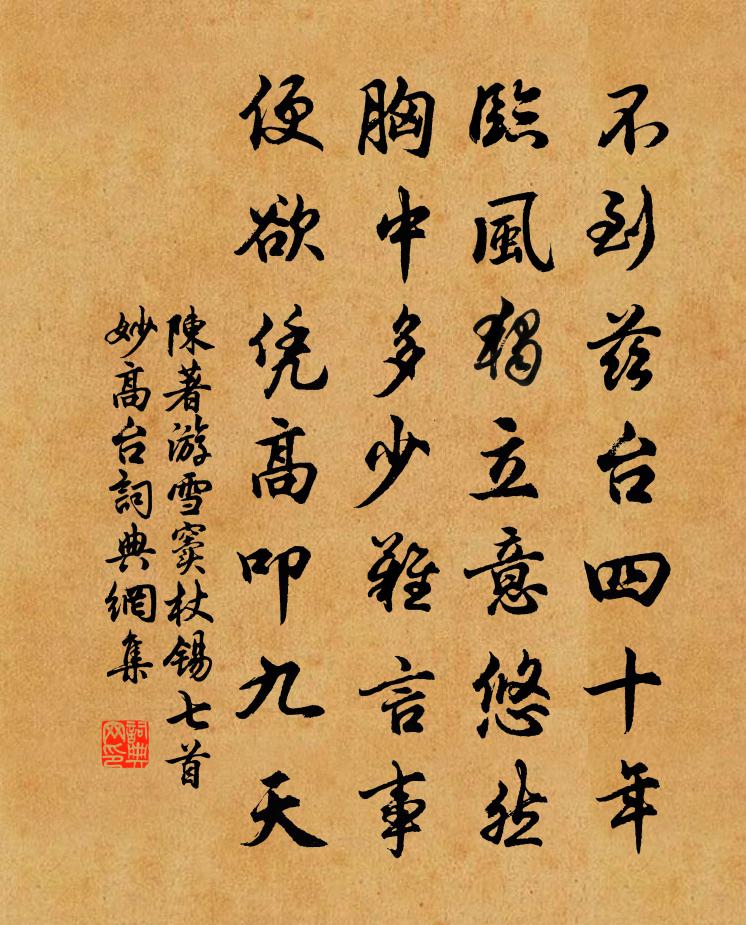 不到兹台四十年
臨風獨立意悠然
胸中多少難言事
便欲凭高叩九天
陳著游雪竇杖锡七首
妙高台詞典網集
詞典網印